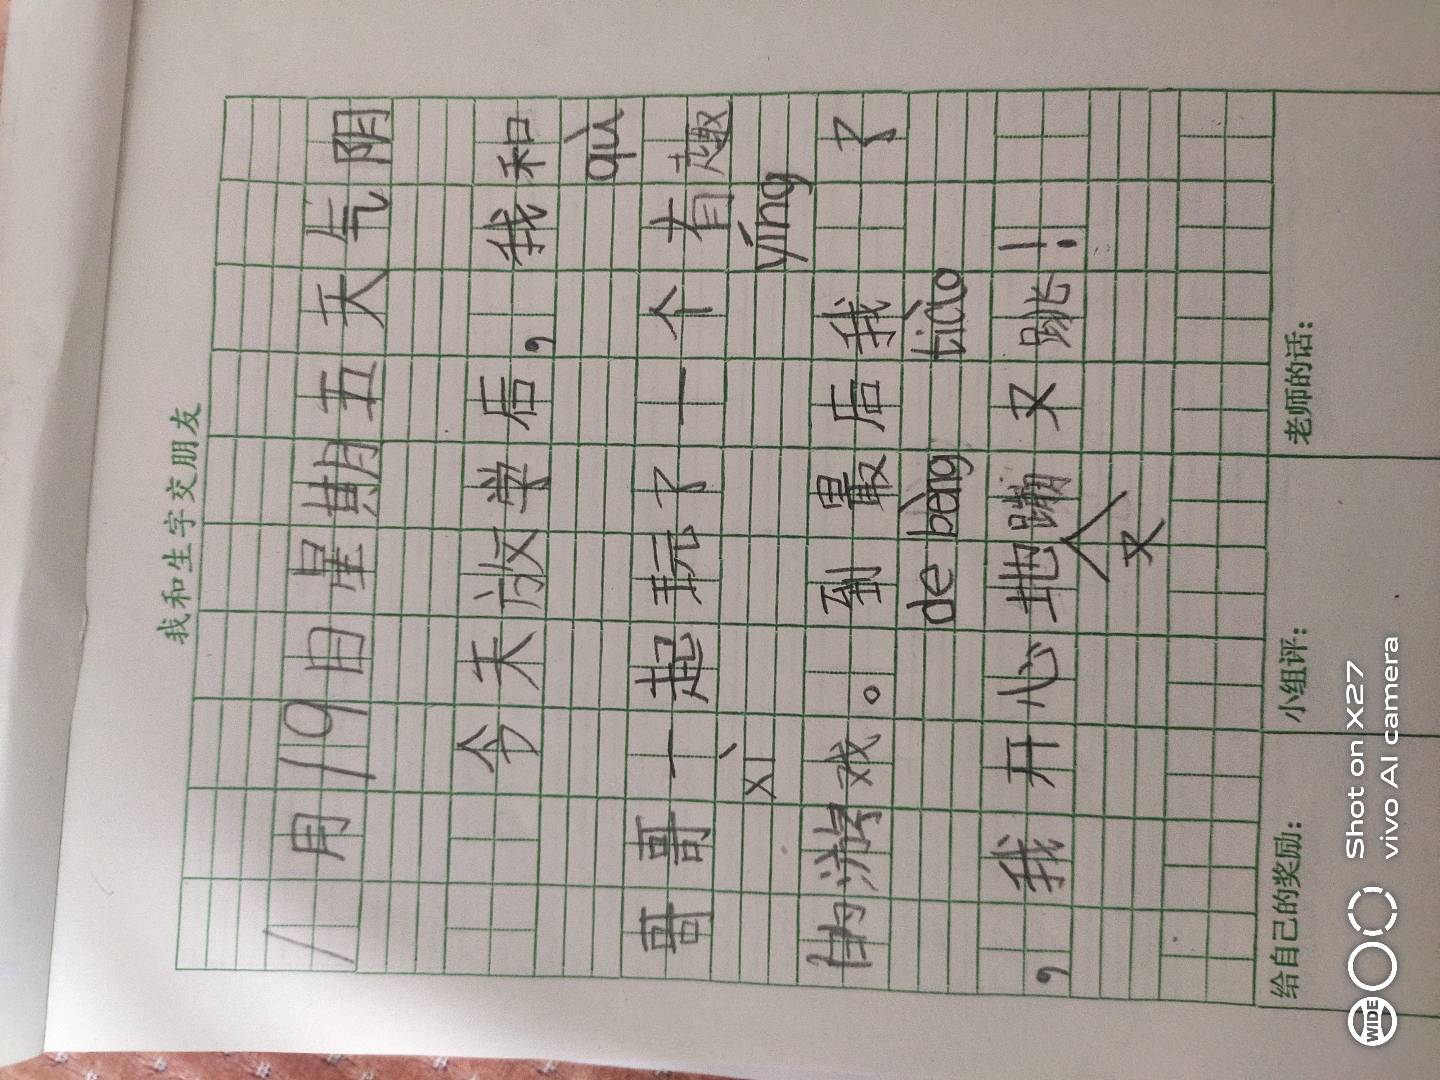 我和生字交朋友
1月19日星期五天气阴
今天放学后，我和
qù
哥哥一起玩了一个有趣
xì yíng
的游戏。到最后我 了
de bèng tiào
，我开心地蹦又跳！
又
给自己的奖励：小组评：老师的话：
Shot on X27
vivo AI camera
WIDE